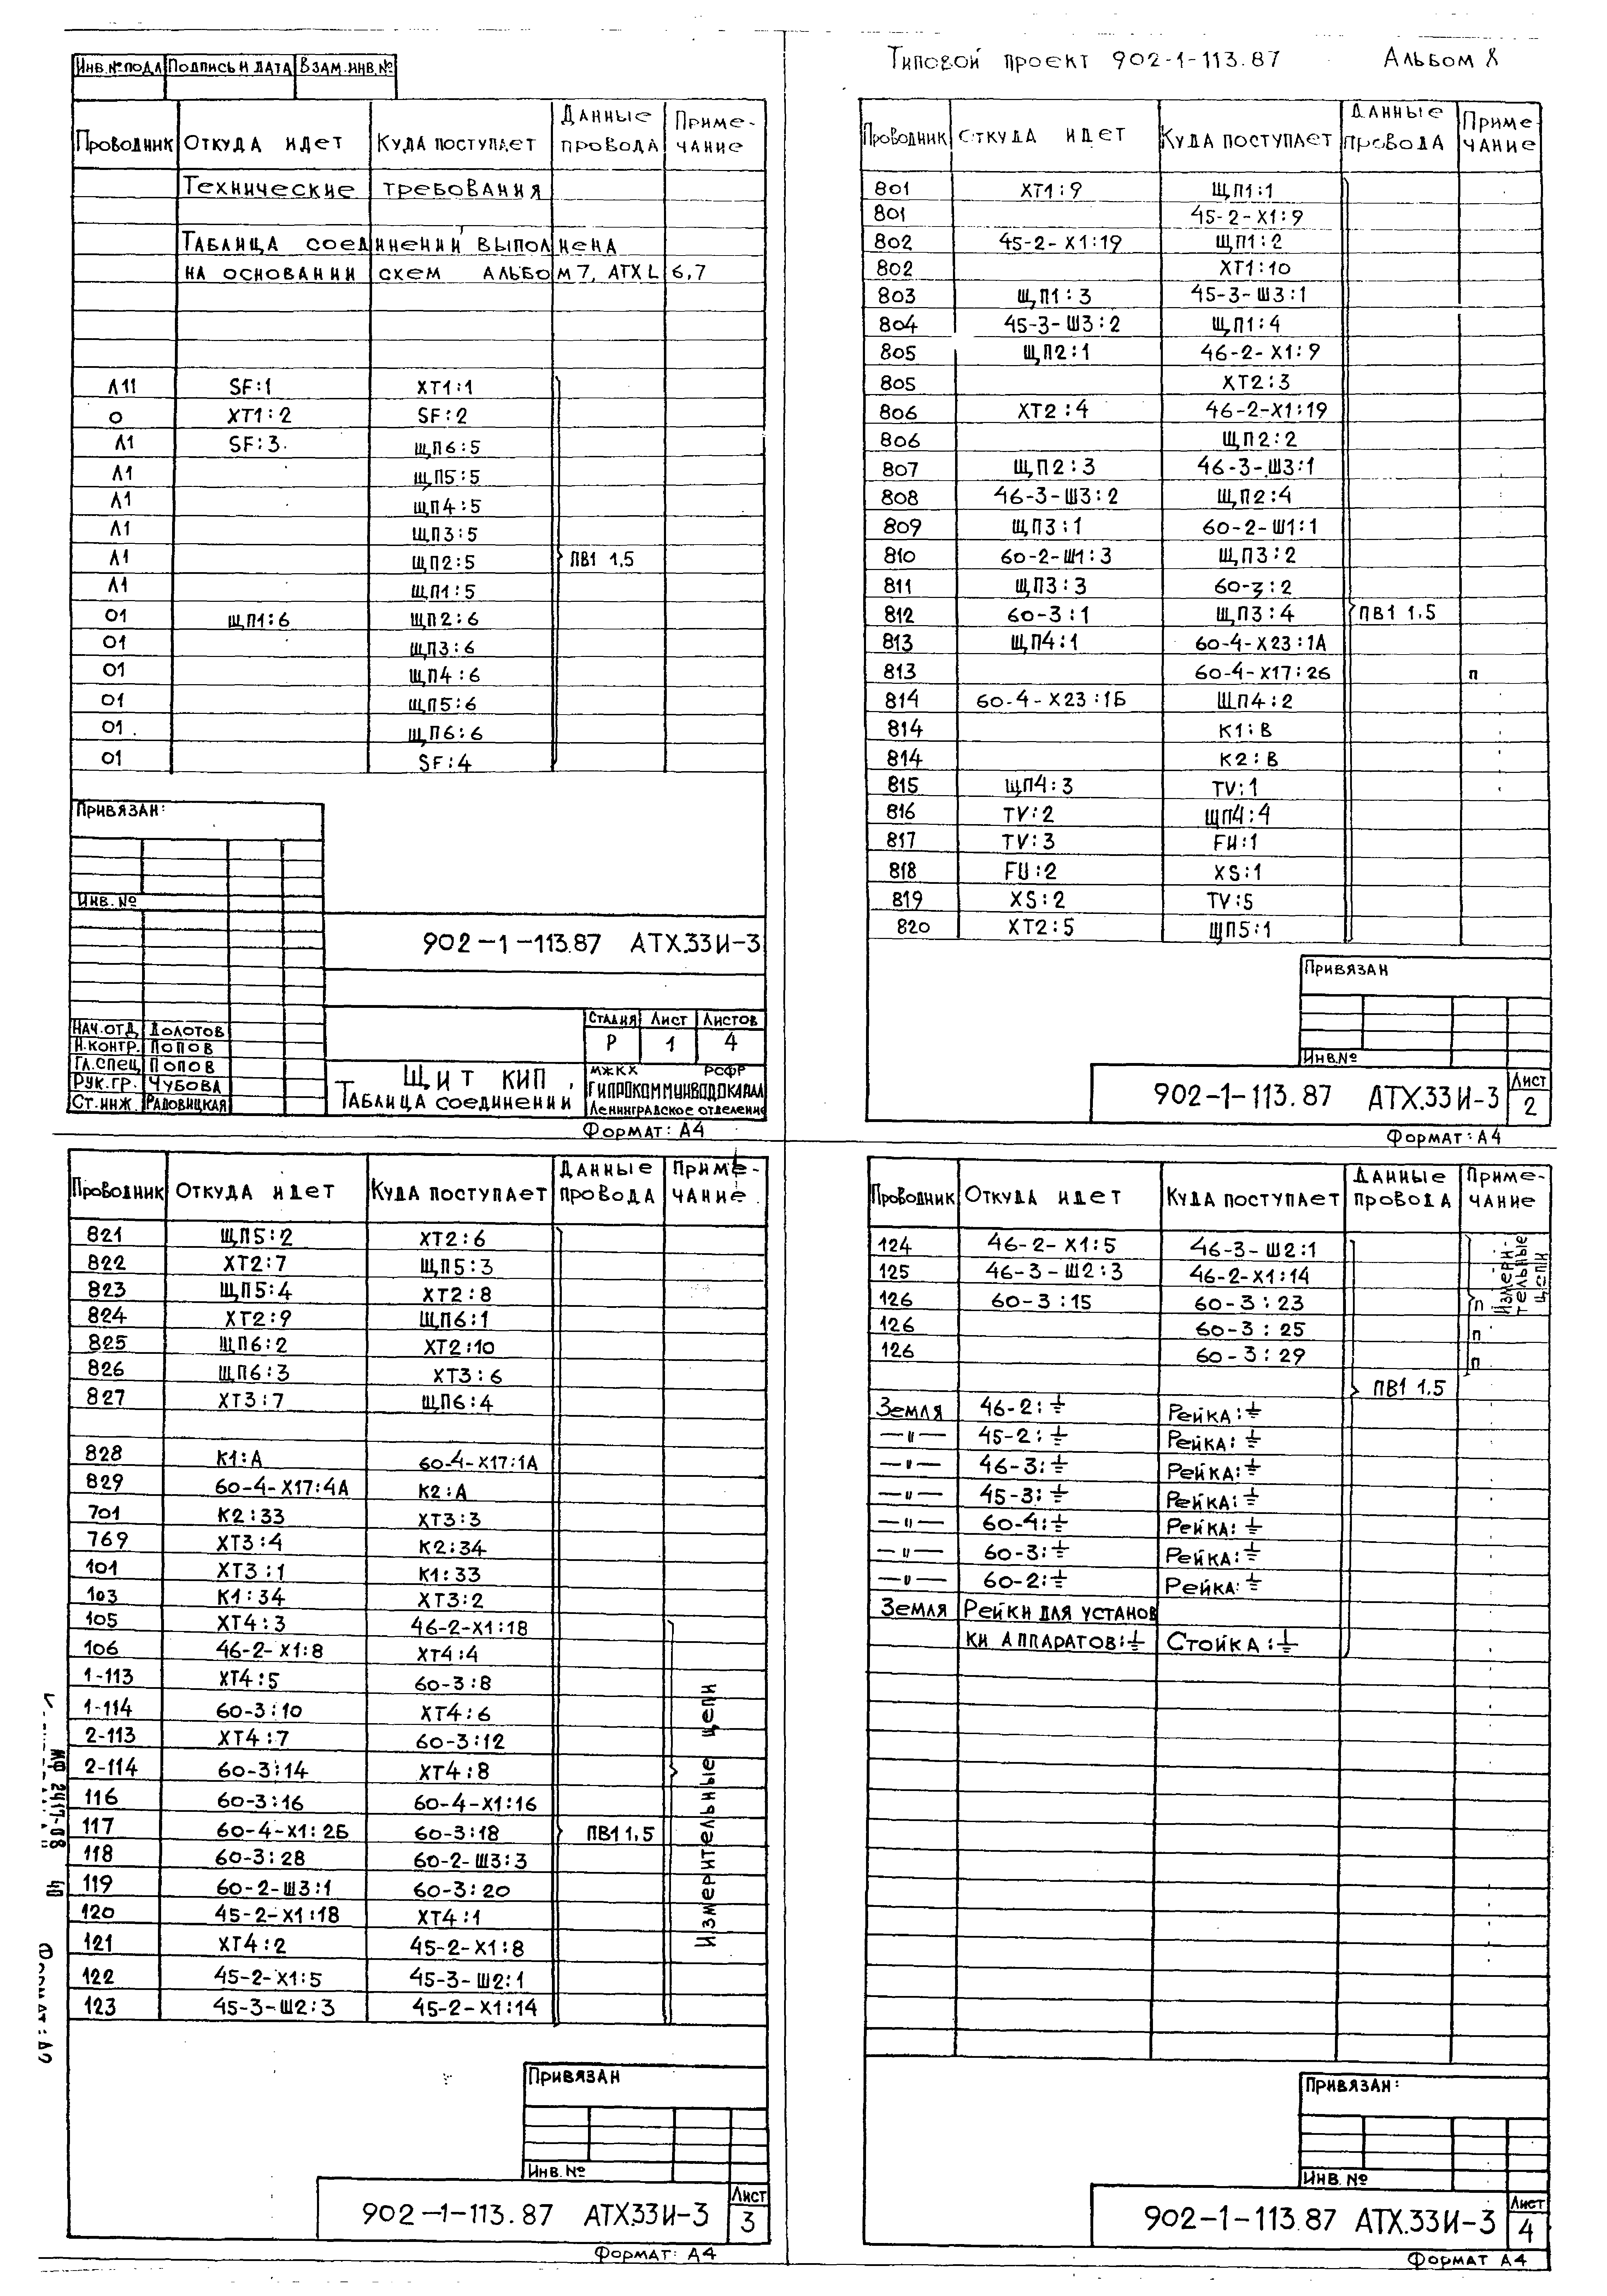 Типовой проект 902-1-113.87 Альбом X
Инв.№ подл Подпись и дата Взам.инв.№
Проводник Откуда идет Куда поступает Данные провода Примечание
Технические требования
Таблица соединений выполнена
на основании схем альбом 7, АТХ L 6,7
Л11 SF:1 ХТ1:1
0 ХТ1:2 SF:2
Л1 SF:3 ЩП6:5
Л1 ЩП5:5
Л1 ЩП4:5
Л1 ЩП3:5
Л1 ЩП2:5 ПВ1 1,5
Л1 ЩП1:5
01 ЩП1:6 ЩП2:6
01 ЩП3:6
01 ЩП4:6
01 ЩП5:6
01 ЩП6:6
01 SF:4
Привязан:
Инв.№
902-1-113.87 АТХ.33И-3
Нач.отд Долотов
Н.контр. Попов
Гл.спец Попов
Рук.гр. Чубова
Ст.инж. Радовицкая
Щит КИП.
Таблица соединений
Стадия Лист Листов
Р 1 4
МЖКХ РСФР
Гипрокоммунводоканал
Ленинградское отделение
Формат: А4
Проводник Откуда идет Куда поступает Данные провода Примечание
801 ХТ1:9 ЩП1:1
801 45-2-Х1:9
802 45-2-Х1:19 ЩП1:2
802 ХТ1:10
803 ЩП1:3 45-3-Ш3:1
804 45-3-Ш3:2 ЩП1:4
805 ЩП2:1 46-2-Х1:9
805 ХТ2:3
806 ХТ2:4 46-2-Х1:19
806 ЩП2:2
807 ЩП2:3 46-3-Ш3:1
808 46-3-Ш3:2 ЩП2:4
809 ЩП3:1 60-2-Ш1:1
810 60-2-Ш1:3 ЩП3:2
811 ЩП3:3 60-3:2
812 60-3:1 ЩП3:4 ПВ1 1,5
813 ЩП4:1 60-4-Х23:1А
813 60-4-Х17:2б п
814 60-4-Х23:1Б ЩП4:2
814 К1:В
814 К2:В
815 ЩП4:3 TV:1
816 TV:2 ЩП4:4
817 TV:3 FU:1
818 FU:2 XS:1
819 XS:2 TV:5
820 ХТ2:5 ЩП5:1
Привязан
Инв.№
902-1-113.87 АТХ.33И-3 Лист 2
Формат: А4
Проводник Откуда идет Куда поступает Данные провода Примечание
821 ЩП5:2 ХТ2:6
822 ХТ2:7 ЩП5:3
823 ЩП5:4 ХТ2:8
824 ХТ2:9 ЩП6:1
825 ЩП6:2 ХТ2:10
826 ЩП6:3 ХТ3:6
827 ХТ3:7 ЩП6:4
828 К1:А 60-4-Х17:1А
829 60-4-Х17:4А К2:А
701 К2:33 ХТ3:3
769 ХТ3:4 К2:34
101 ХТ3:1 К1:33
103 К1:34 ХТ3:2
105 ХТ4:3 46-2-Х1:18
106 46-2-Х1:8 ХТ4:4
1-113 ХТ4:5 60-3:8
1-114 60-3:10 ХТ4:6
2-113 ХТ4:7 60-3:12
2-114 60-3:14 ХТ4:8
116 60-3:16 60-4-Х1:1б
117 60-4-Х1:2Б 60-3:18 ПВ1 1,5
118 60-3:28 60-2-Ш3:3
119 60-2-Ш3:1 60-3:20
120 45-2-Х1:18 ХТ4:1
121 ХТ4:2 45-2-Х1:8
122 45-2-Х1:5 45-3-Ш2:1
123 45-3-Ш2:3 45-2-Х1:14
Измерительные цепи
2417-08 40
Привязан
Инв.№
902-1-113.87 АТХ.33И-3 Лист 3
Формат: А4
Проводник Откуда идет Куда поступает Данные провода Примечание
124 46-2-Х1:5 46-3-Ш2:1
125 46-3-Ш2:3 46-2-Х1:14
126 60-3:15 60-3:23 п
126 60-3:25 п
126 60-3:29 п
Измерительные цепи
ПВ1 1,5
Земля 46-2:⏚ Рейка:⏚
—"— 45-2:⏚ Рейка:⏚
—"— 46-3:⏚ Рейка:⏚
—"— 45-3:⏚ Рейка:⏚
—"— 60-4:⏚ Рейка:⏚
—"— 60-3:⏚ Рейка:⏚
—"— 60-2:⏚ Рейка:⏚
Земля Рейки для установ
ки аппаратов:⏚ Стойка:⏚
Привязан:
Инв.№
902-1-113.87 АТХ.33И-3 Лист 4
Формат А4